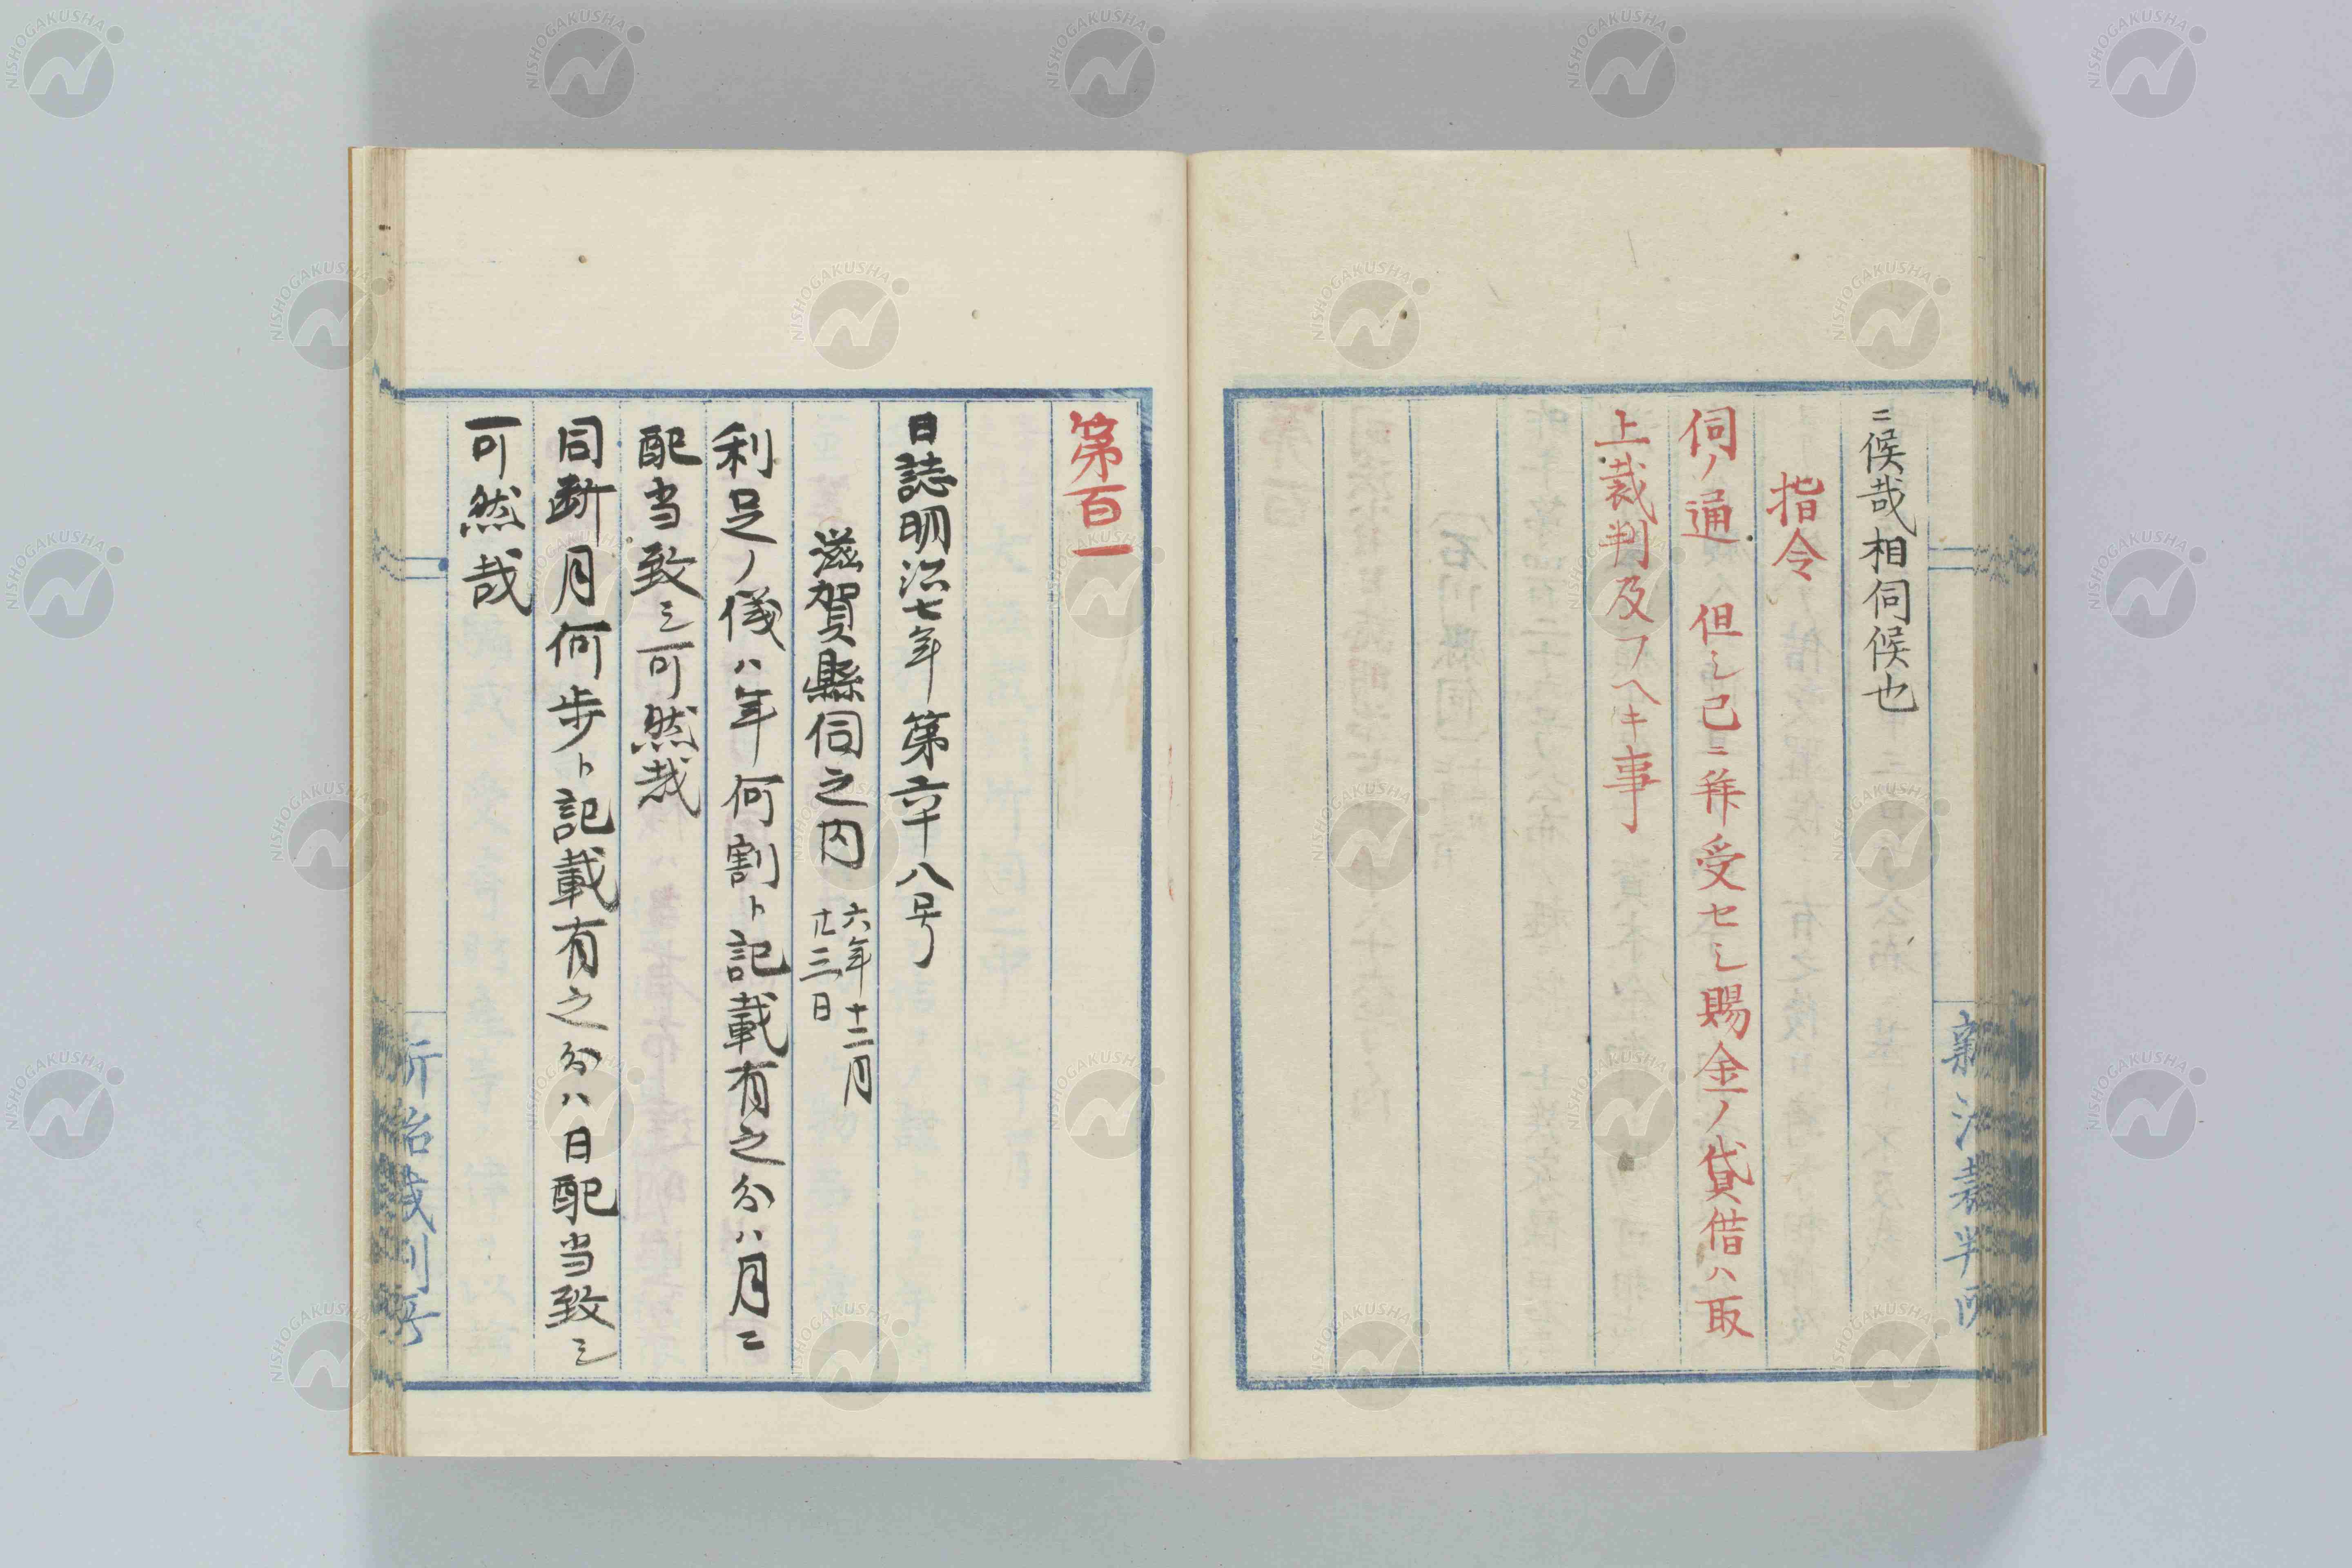 ニ候哉相伺候也
指令
伺ノ通 但シ已ニ稟受セシ賜金ノ貸借ハ取
上裁判及フヘキ事
新治裁判所
第百一
日誌明治七年 第六十八号
滋賀縣伺之内 六年十二月
廿三日
利足ノ儀ハ年何割ト記載有之分ハ月ニ
配当致シ可然哉
同断月何歩ト記載有之分ハ日配当致シ
可然哉
新治裁判所
NISHOGAKUSHA